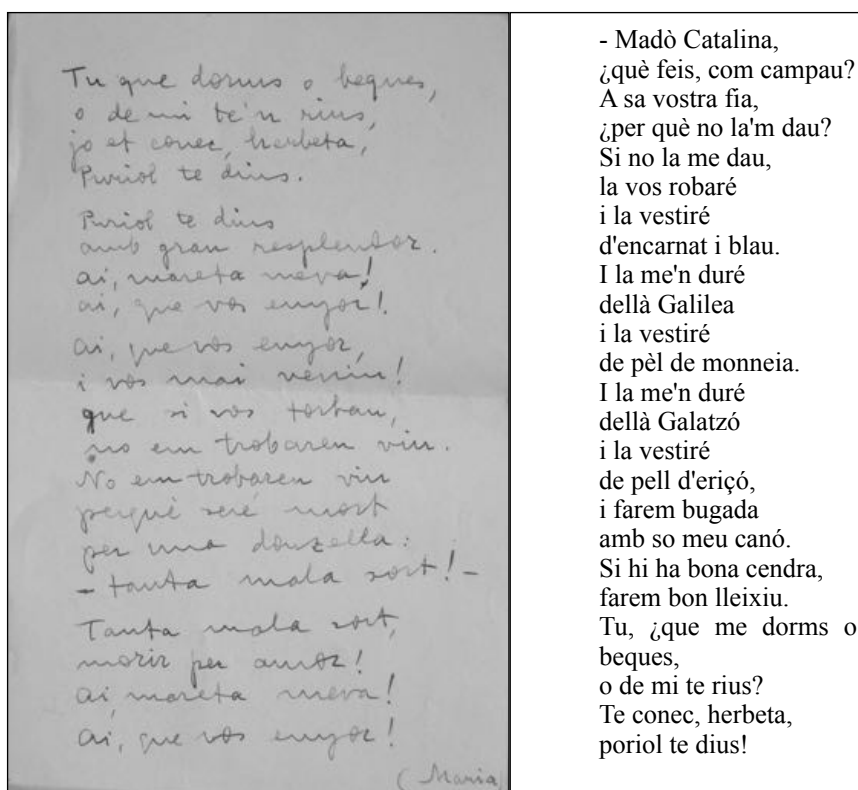 Tu que dorms o beques,
o de mi te'n rius,
jo et conec, herbeta,
Puriol te dius.
Puriol te dius
amb gran resplentor.
ai, mareta meva!
ai, que vos enyor!
Ai, que vos enyor,
i vos mai veniu!
que si vos torbau,
no em trobareu viu.
No em trobareu viu
perquè seré mort
per una donzella:
- tanta mala sort! -
Tanta mala sort,
morir per amor!
Ai, mareta meva!
Ai, que vos enyor!
(Maria
- Madò Catalina,
¿què feis, com campau?
A sa vostra fia,
¿per què no la'm dau?
Si no la me dau,
la vos robaré
i la vestiré
d'encarnat i blau.
I la me'n duré
dellà Galilea
i la vestiré
de pèl de monneia.
I la me'n duré
dellà Galatzó
i la vestiré
de pell d'eriçó,
i farem bugada
amb so meu canó.
Si hi ha bona cendra,
farem bon lleixiu.
Tu, ¿que me dorms o
beques,
o de mi te rius?
Te conec, herbeta,
poriol te dius!